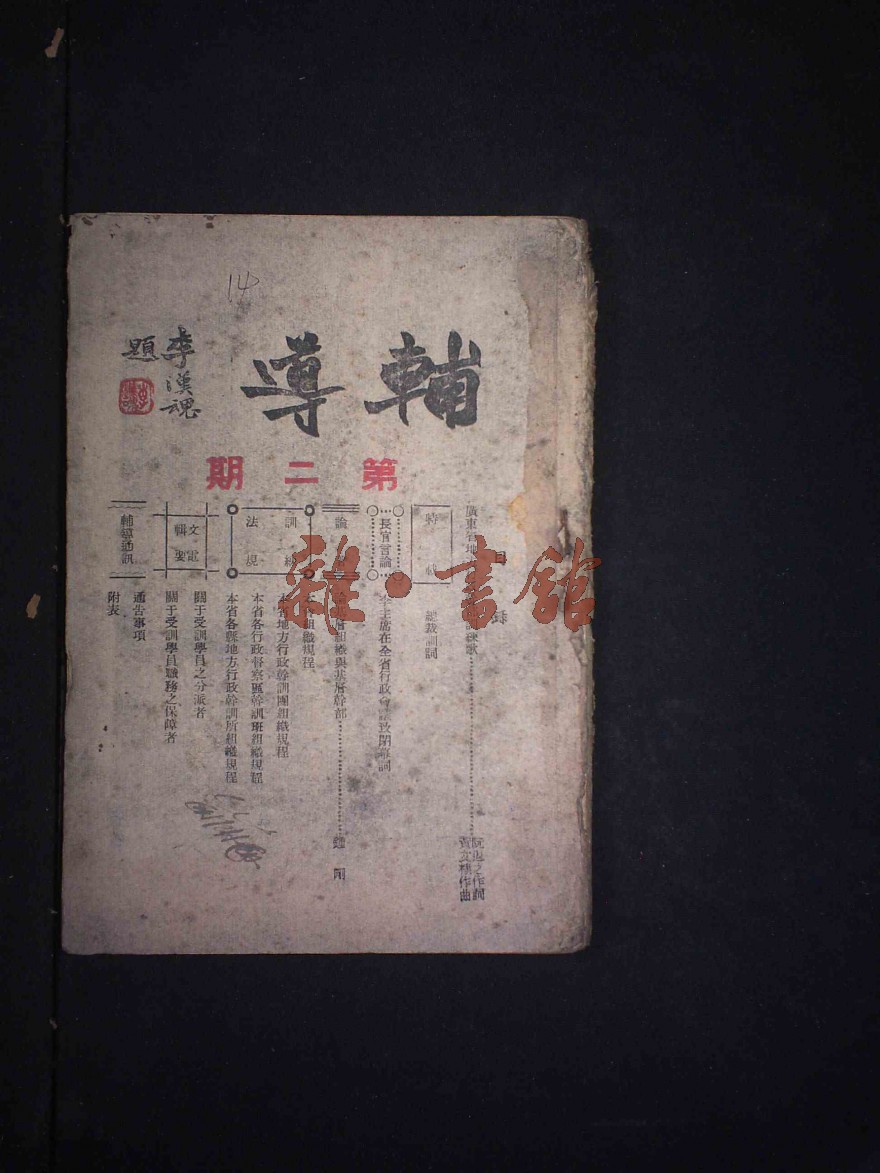 14
輔導
李漢魂
題
第二期
目錄
廣東省地
阮退之作詞
黃友棣作曲
特載
總裁訓詞
長官言論
李主席在全省行政會議致閉幕詞
論
層組織與基層幹部
剛
訓練
法規
組織規程
本省地方行政幹訓團組織規程
本省各行政督察區幹訓班組織規程
本省各縣地方行政幹訓所組織規程
文電
輯要
關于受訓學員之分派者
關于受訓學員職務之保障者
輔導通訊
通告事項
附表
雜·書館